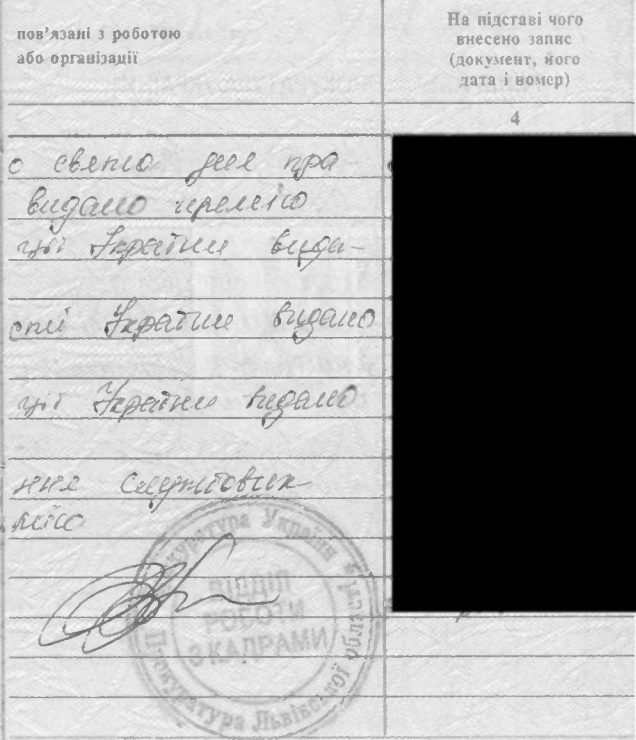 пов'язані з роботою
або організації
На підставі чого
внесено запис
(документ, його
дата і номер)
4
о свято дня пра-
видано премію
ції України вида-
сті України видано
ції України видано
ння службових
мію
Прокуратура України
ВІДДІЛ
РОБОТИ
З КАДРАМИ
Прокуратура Львівської області